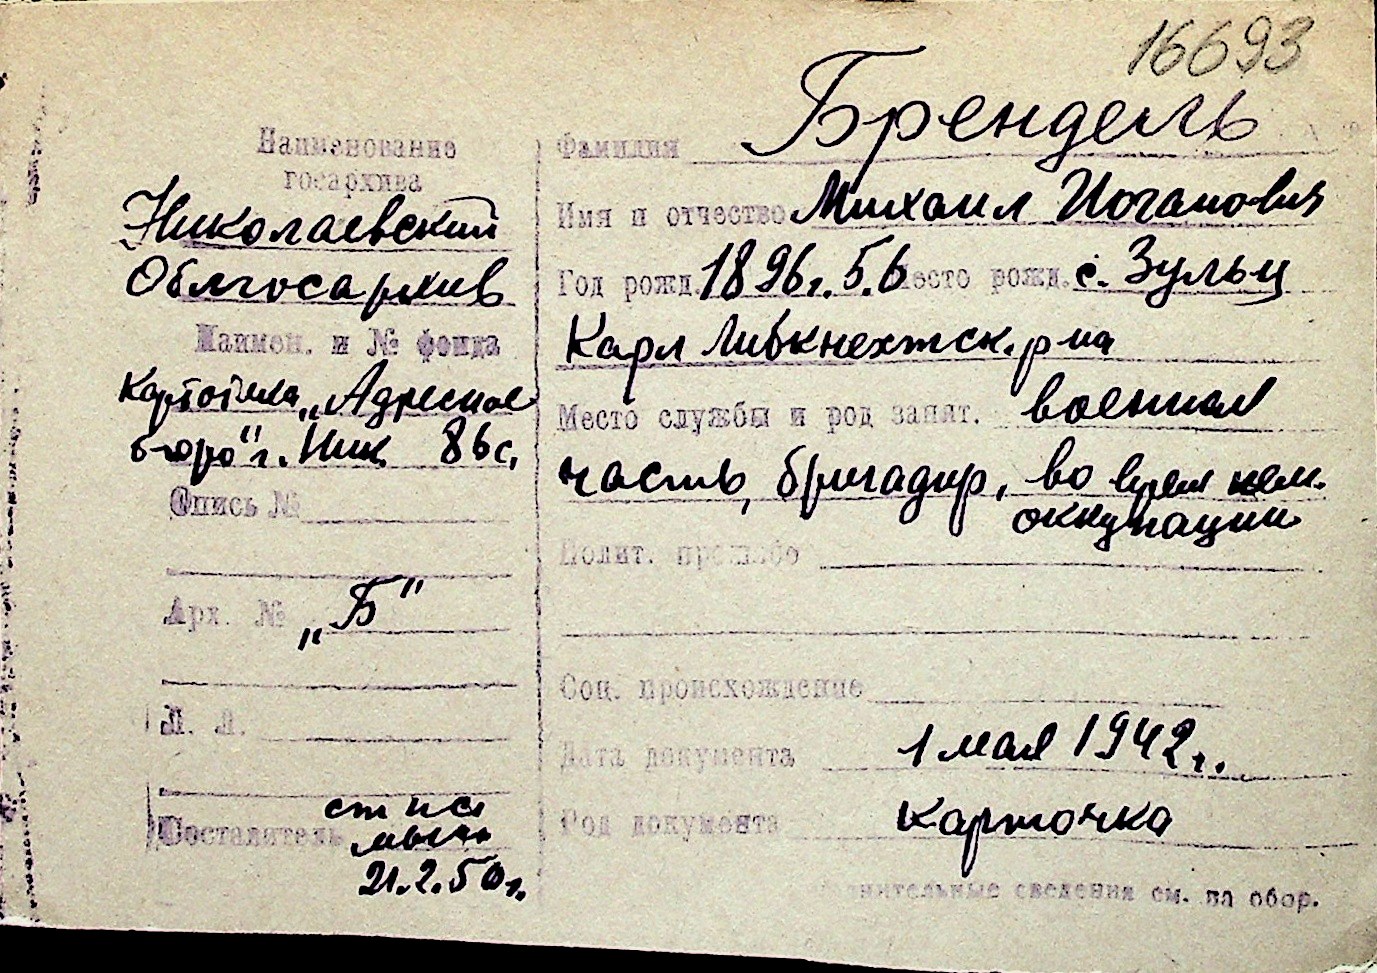 16693
Наименование
госархива
Николаевский
Облгосархив
Наимен. и № фонда
Картотека „Адресное
бюро" г. Ник
Опись №
Арх. № „Б"
Л. Л.
Составитель
21.2.50г.
Фамилия Брендель
Имя и отчество Михаил Иоганович
Год рожд. 1896г. 5.6 Место рожд. с. Зульц
Карл Либкнехтск. р-на
Место службы и род занят. военная
часть, бригадир, во время нем.
оккупации
Полит.
Соц. происхождение
Дата документа 1 мая 1942г.
Род документа карточка
нительные сведения см. на обор.